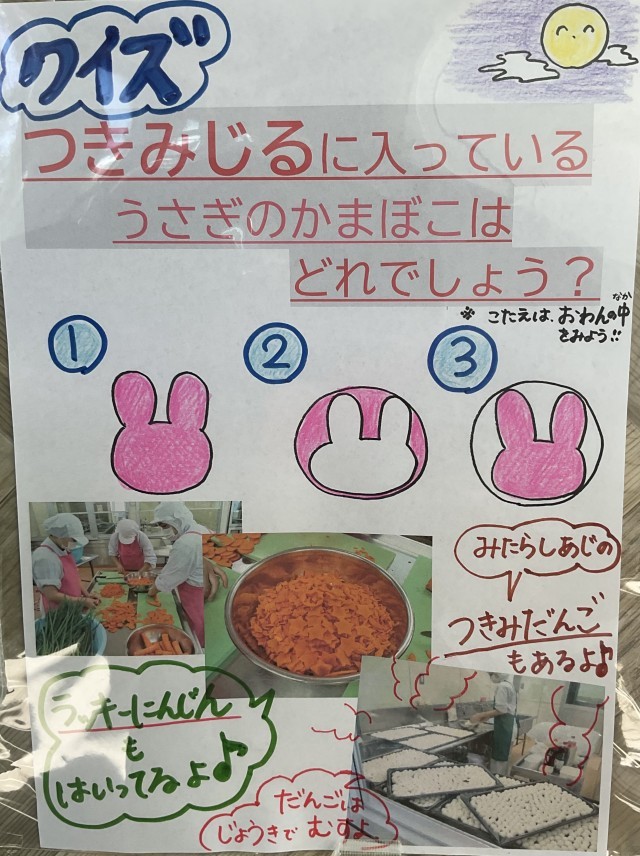 クイズ
つきみじるに入っている
うさぎのかまぼこは
どれでしょう？
※ こたえは、おわんの中
なか
をみよう!!
1
2
3
みたらしあじの
つきみだんご
もあるよ♪
ラッキーにんじん
も
はいってるよ♪
だんごは
じょうきで むすよ